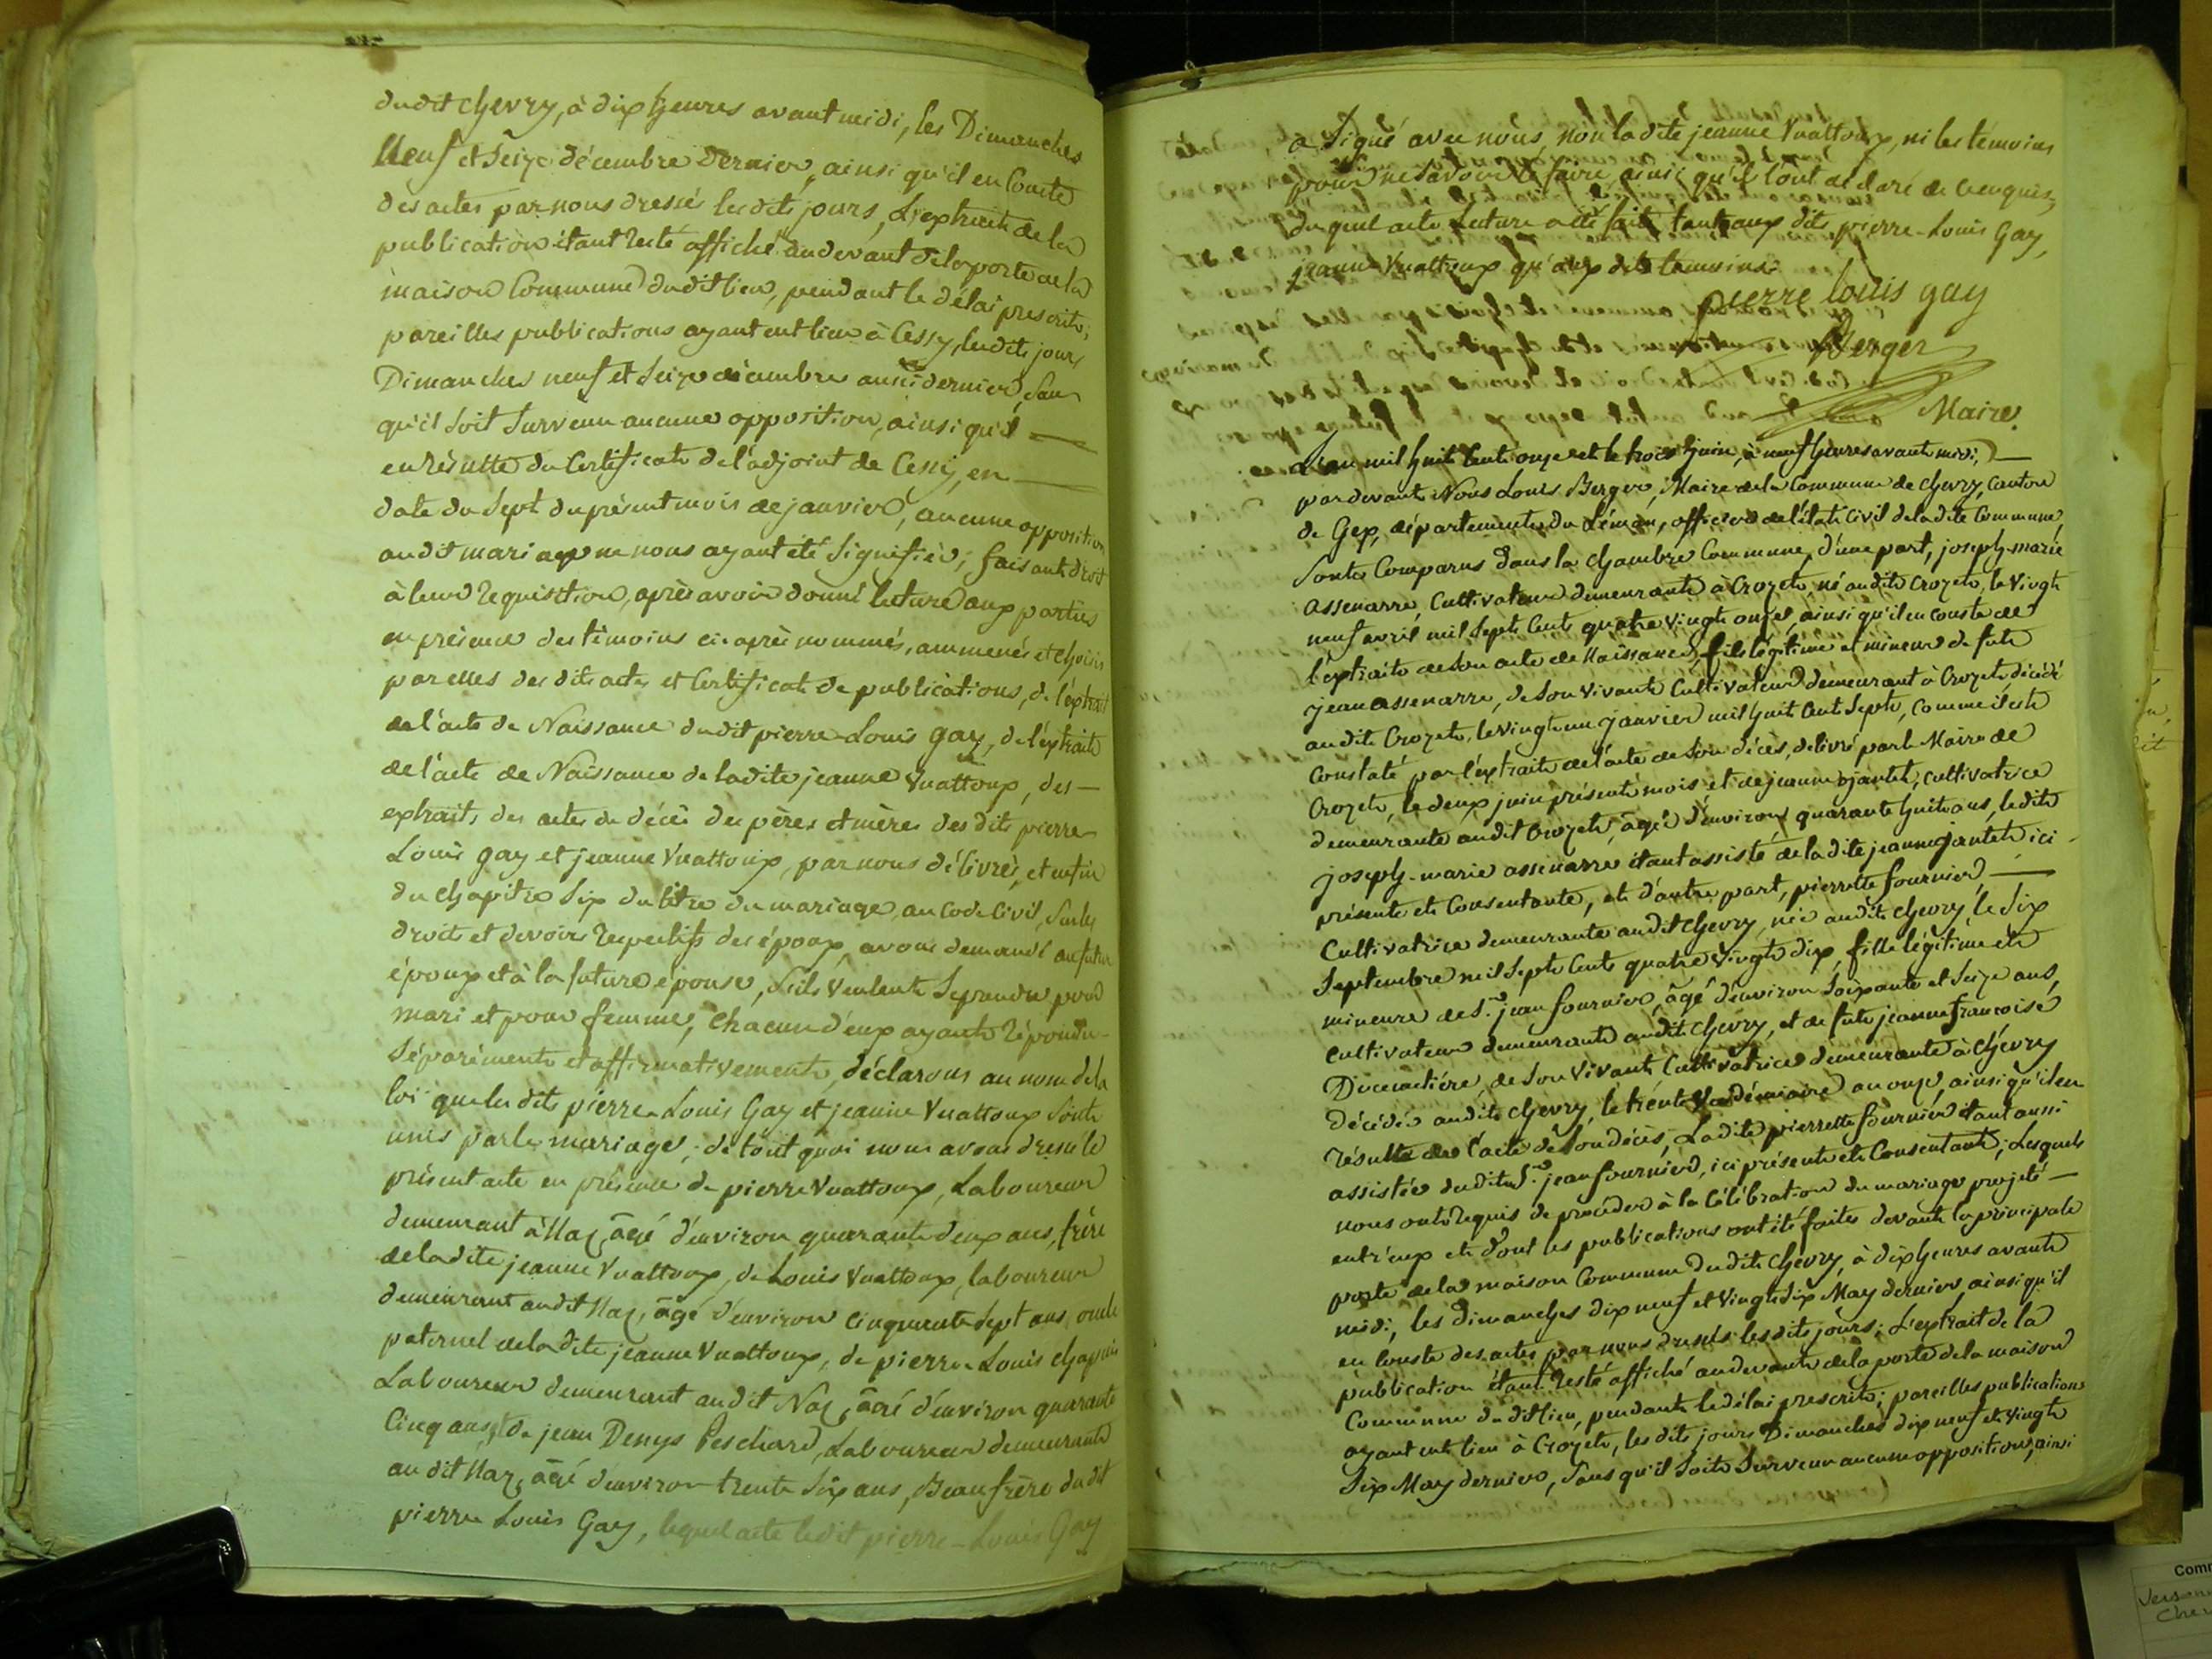 dudit chevry, à dix heures avant midi, les Dimanches
Neuf et Seize décembre Dernier, ainsi qu'il en Conste
des actes par nous dressés lesdits jours, L'extrait de la
publication étant resté affiché au devant de la porte de la
maison Commune dudit lieu, pendant le délai prescrit;
pareilles publications ayant eut lieu à Cessy, lesdits jours
Dimanches neuf et Seize décembre aussi dernier, Sans
qu'il Soit Survenu aucune opposition, ainsi qu'il
en résulte du Certificat de l'adjoint de Cessy, en
date du Sept du présent mois de janvier, aucune opposition
audit mariage ne nous ayant été Signifiée; faisant droit
à leur requisition, après avoir donné lecture aux parties
en présence des témoins ci-après nommés, ammenés et choisis
par elles desdits actes et Certificat de publications, de l'extrait
de l'acte de Naissance dudit pierre-Louis gay, de l'extrait
de l'acte de Naissance de ladite jeanne Vuattoux, des
extraits des actes de décès des pères et mères desdits pierre
Louis gay et jeanne Vuattoux, par nous délivrés, et enfin
du chapitre Six du titre du mariage, au Code Civil, Sur les
droits et devoirs respectifs des époux, avons demandé au futur
époux et à la future épouse, S'ils veulent Se prendre pour
mari et pour femme, Chacun d'eux ayant répondu
Séparément et affirmativement, déclarons au nom de la
loi que lesdits pierre-Louis Gay et jeanne Vuattoux Sont
unis par le mariage; de tout quoi nous avons dressé le
présent acte en présence de pierre Vuattoux, Laboureur
demeurant à Naz, âgé d'environ quarante deux ans, frère
de ladite jeanne Vuattoux, de Louis Vuattoux, laboureur
demeurant audit Naz, âgé d'environ Cinquante Sept ans, oncle
paternel de ladite jeanne Vuattoux, de pierre Louis chapuis
Laboureur demeurant audit Naz, âgé d'environ quarante
Cinq ans, de jean Denys Peschard, Laboureur demeurant
audit Naz, âgé d'environ trente Six ans, Beaufrère dudit
pierre Louis Gay, lequel acte ledit pierre-Louis Gay
a Signé avec nous, non ladite jeanne Vuattoux, ni les témoins
pour ne Savoir le faire, ainsi qu'ils l'ont déclaré de ce enquis;
duquel acte Lecture a été faite tant aux dits pierre-Louis Gay,
jeanne Vuattoux qu'aux dits temoins.
pierre louis gay
Berger
Maire
L'an mil huit Cent onze et le trois juin, à neuf heures avant midi,
par devant Nous Louis Berger, Maire de la Commune de chevry, Canton
de Gex, département du Léman, officier de l'état Civil de ladite Commune,
Sont Comparus dans la chambre Commune, d'une part, joseph-marie
assenarre, Cultivateur demeurant à Crozet, né audit Crozet, le Vingt
neuf avril mil Sept Cent quatre Vingt onze, ainsi qu'il en conste de
l'extrait de Son acte de Naissance, fils légitime et mineur de fut
jean assenarre, de Son Vivant Cultivateur demeurant à Crozet, décédé
audit Crozet, le vingt un janvier mil huit Cent Sept, Comme il est
Constaté par l'extrait de l'acte de Son décès, délivré par le Maire de
Crozet, le deux juin présent mois et de jeanne jantet, Cultivatrice
demeurante audit Crozet, âgée d'environ quarante huit ans, ledit
joseph-marie assenarre étant assisté de ladite jeanne jantet ici
présente et Consentante, et d'autre part, pierrette fournier
Cultivatrice demeurante audit chevry, née audit chevry, le Six
Septembre mil Sept Cent quatre Vingt dix, fille légitime et
mineure de S.r jean fournier, âgé d'environ Soixante et Seize ans,
cultivateur demeurant audit chevry, et de fut jeanne françoise
de Son Vivant Cultivatrice demeurante à chevry
Décédée audit chevry, le trente Vendémiaire an onze, ainsi qu'il en
résulte de l'acte de Son décès, Ladite pierrette fournier étant aussi
assistée dudit S.r jean fournier, ici présent et Consentant; Lesquels
nous ont requis de procéder à la Célébration du mariage projeté
entr'eux et dont les publications ont été faites devant la principale
porte de la maison Commune dudit chevry, à dix heures avant
midi, les dimanches dix neuf et Vingt Six May dernier, ainsi qu'il
en Conste des actes par nous dressés lesdits jours; L'extrait de la
publication étant resté affiché au devant de la porte de la maison
Commune dudit lieu, pendant le délai prescrit; pareilles publications
ayant eut lieu à Crozet, lesdits jours Dimanches dix neuf et Vingt
Six May dernier, Sans qu'il Soit Survenu aucune opposition, ainsi